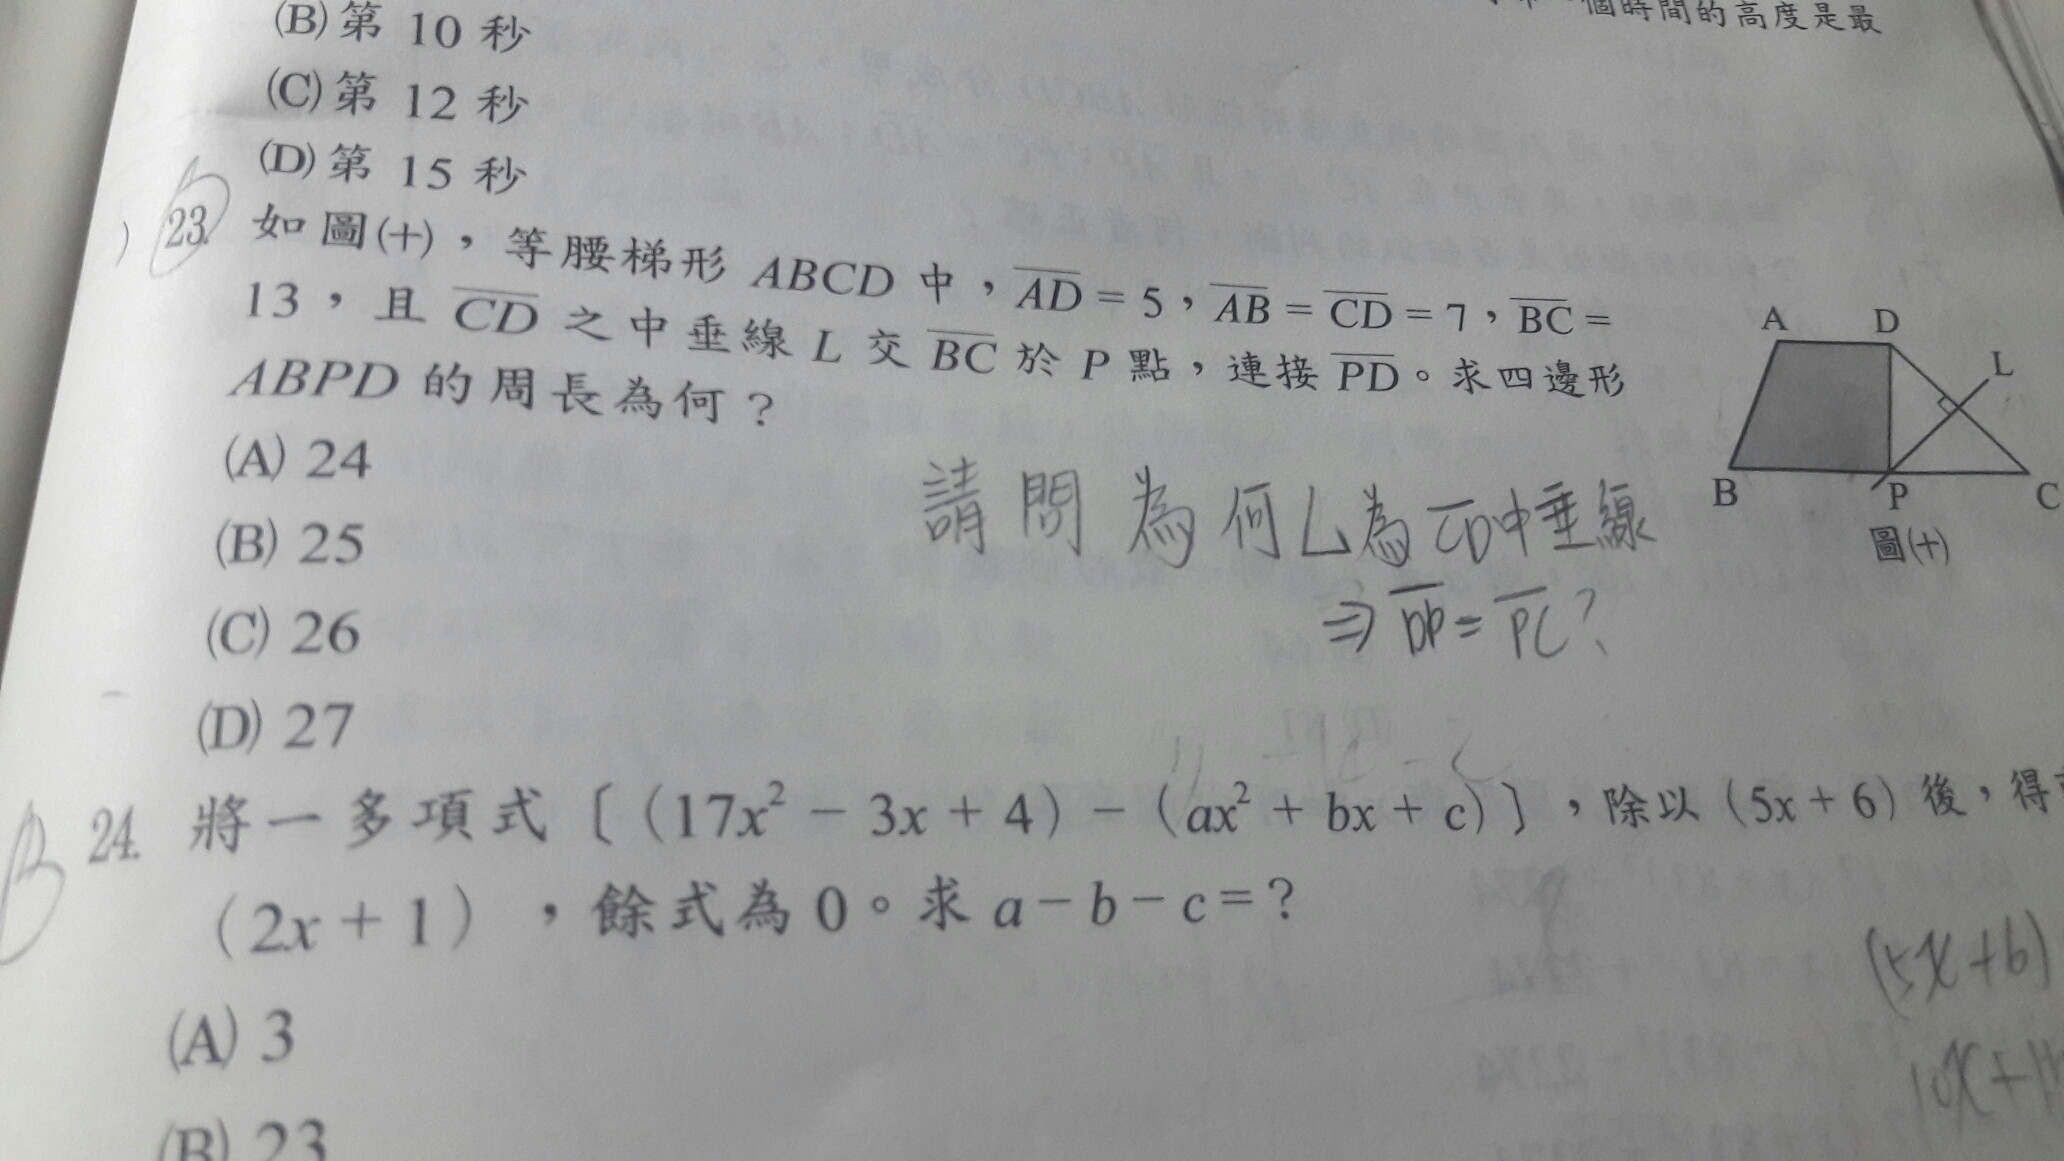 個時間的高度是最
(B) 第 10 秒
(C) 第 12 秒
(D) 第 15 秒
) 23. 如圖(十)，等腰梯形 ABCD 中，AD = 5，AB = CD = 7，BC =
13，且 CD 之中垂線 L 交 BC 於 P 點，連接 PD。求四邊形
ABPD 的周長為何？
A D
L
B P C
圖(十)
(A) 24
(B) 25
(C) 26
(D) 27
請問為何L為CD中垂線
⇒ DP = PC？
B 24. 將一多項式〔(17x² − 3x + 4) − (ax² + bx + c)〕，除以 (5x + 6) 後，得
(2x + 1)，餘式為 0。求 a − b − c = ？
(5x+6)
10x+1
(A) 3
(B) 23